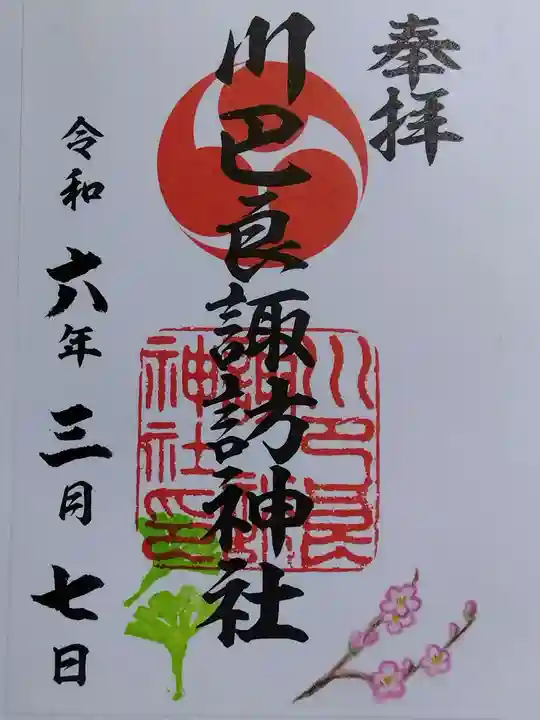 奉拝
川巴良諏訪神社
川巴良
諏訪
神社印
令和六年三月七日